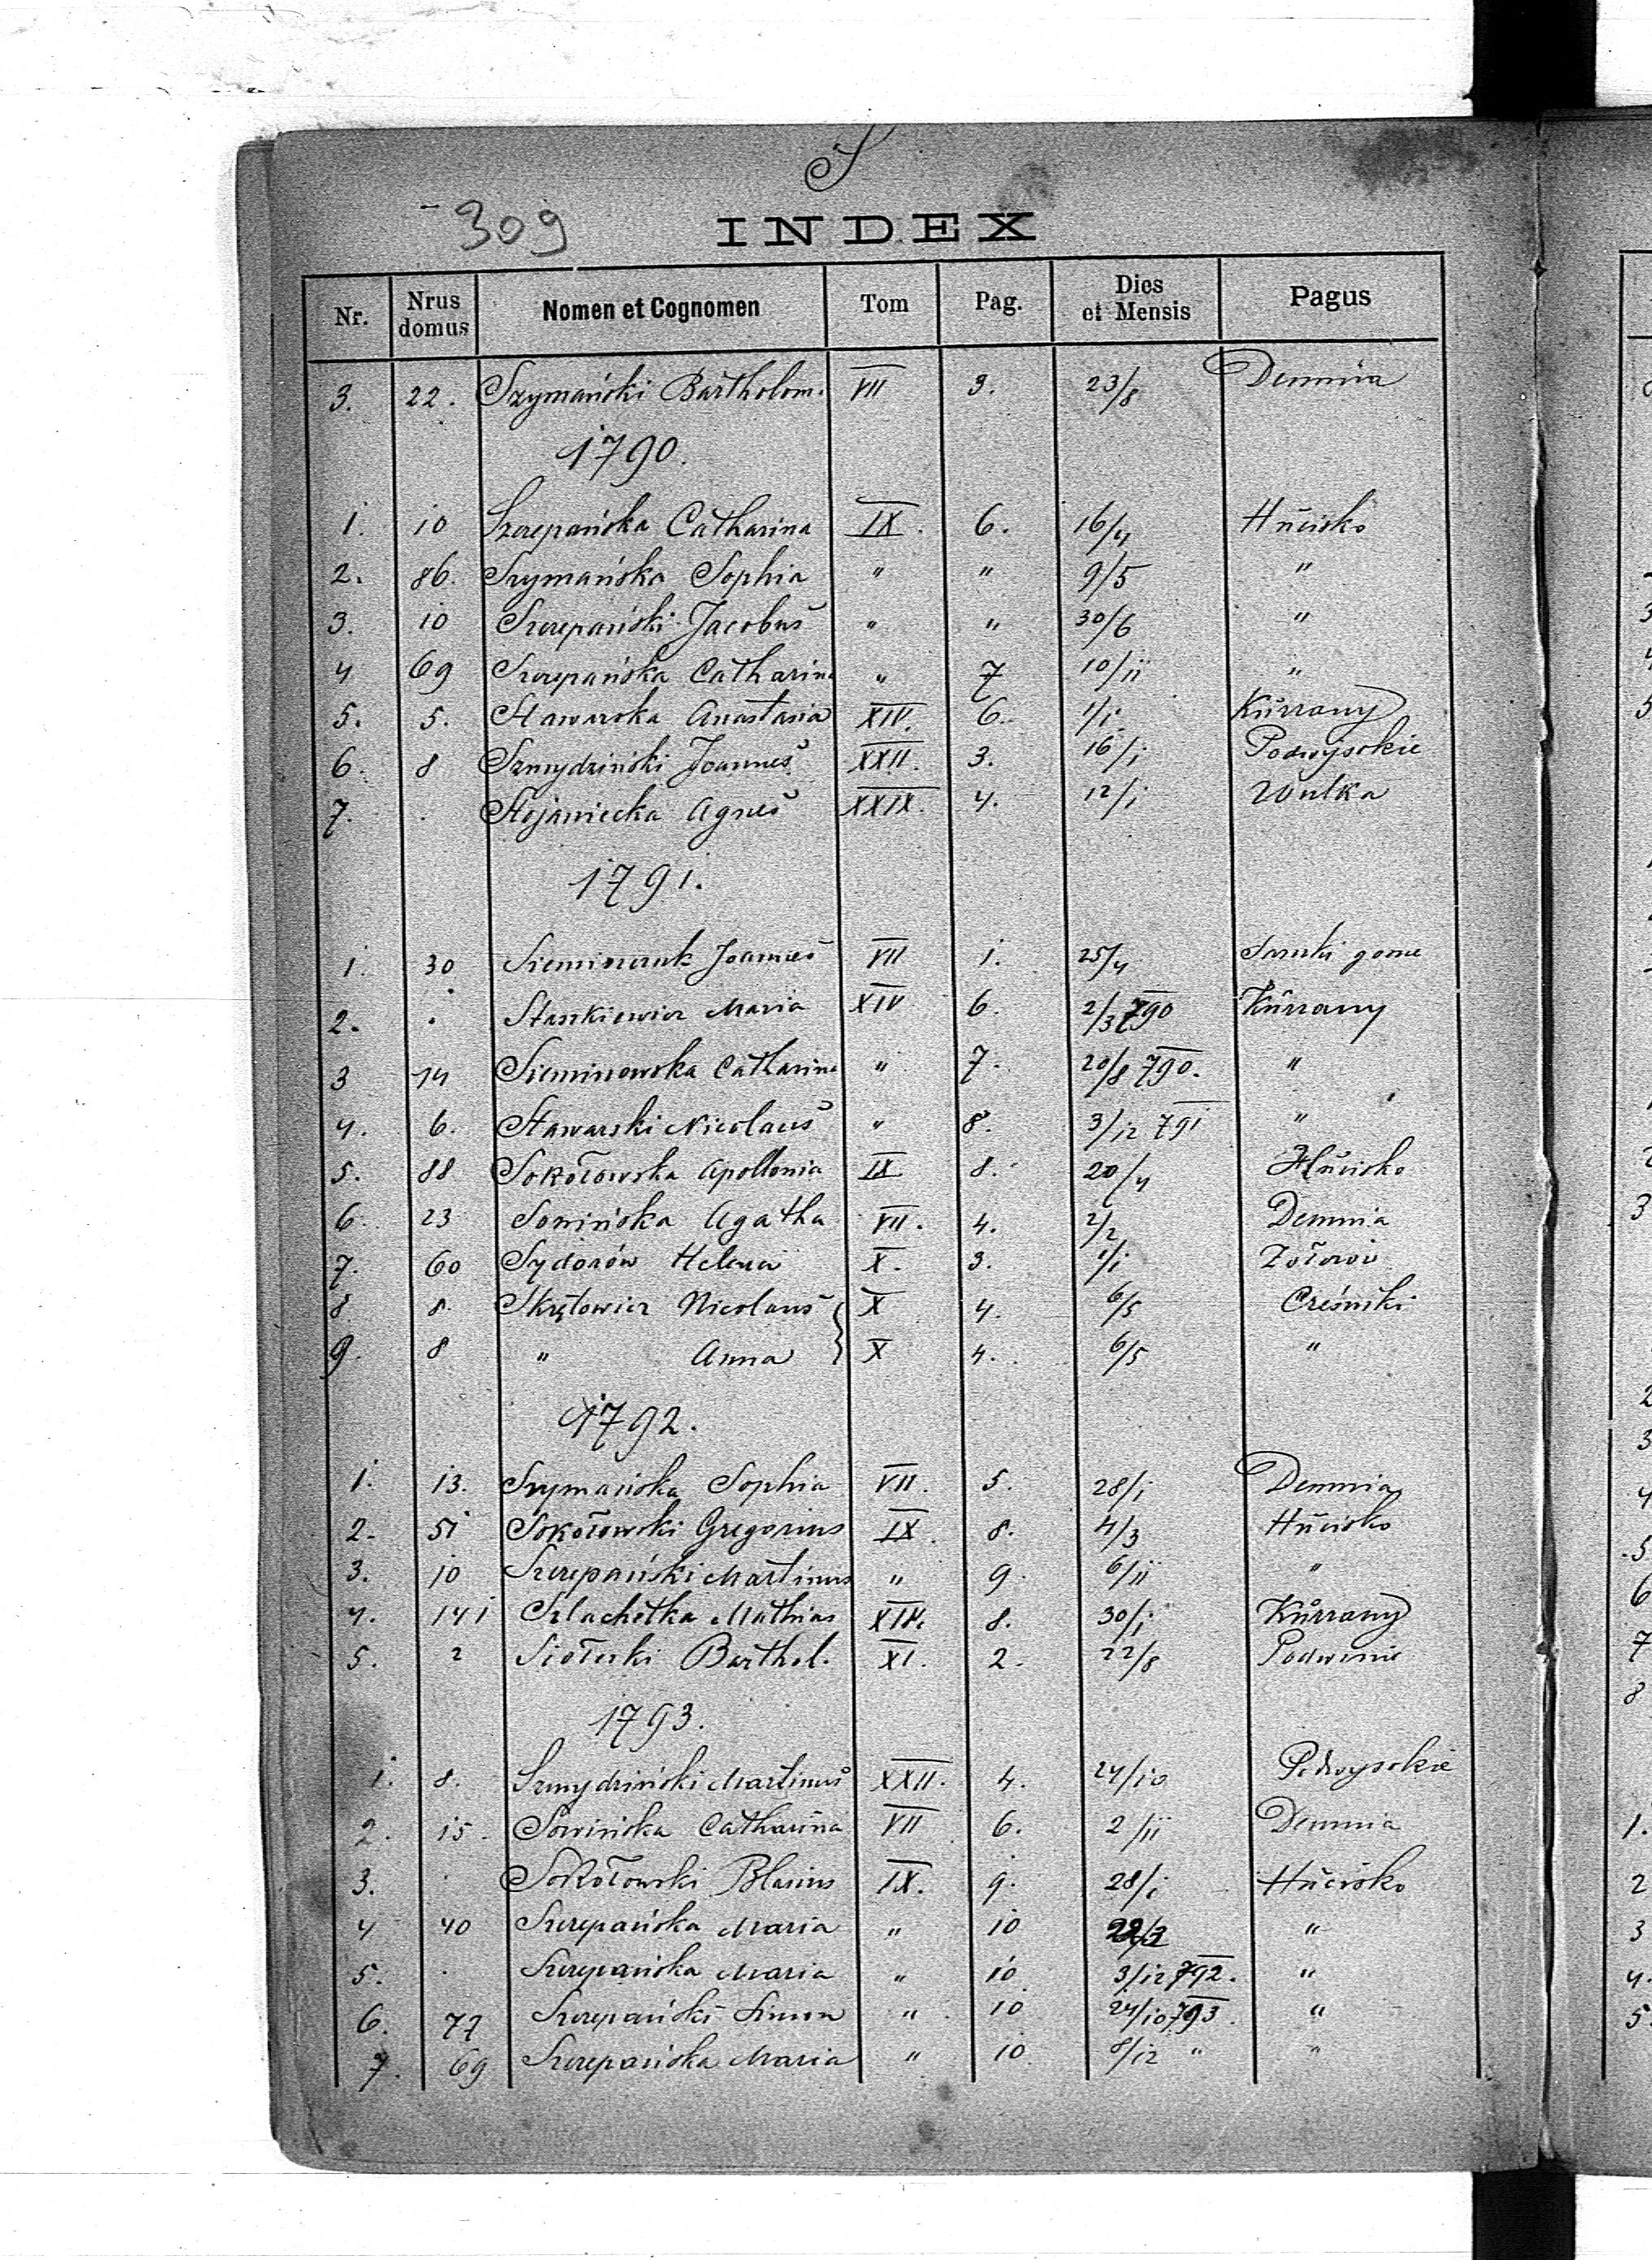 S
309
INDEX
Nr. Nrus domus Nomen et Cognomen Tom Pag. Dies et Mensis Pagus
3. 22. Szymański Bartholom. VII 3. 23/8 Demnia
1790.
1. 10 Szczepańska Catharina IX. 6. 16/4 Hucisko
2. 86. Szymańska Sophia " " 9/5 "
3. 10 Szczepański Jacobus " " 30/6 "
4 69 Szczepańska Catharina " 7 10/11 "
5. 5. Stawarska Anastasia XIV. 6. 1/1 Kurzany
6. 8 Szmydziński Joannes XXII. 3. 16/1 Podwysokie
7. . Stojaniecka Agnes XXIX. 4. 12/1 Wulka
1791.
1. 30 Joannes VII 1. 25/4 gorne
2. . Staszkiewicz Maria XIV 6. 2/3 790 Kurzany
3 14 Catharina " 7. 20/8 790. "
4. 6. Stawarski Nicolaus " 8. 3/12 791 "
5. 88 Sokołowska Apollonia IX 8. 20/4 Hucisko
6. 23 Sowińska Agatha VII. 4. 2/2 Demnia
7. 60 Sydorów Helena X. 3. 1/1
8 8. Nicolaus X 4. 6/5 Cześniki
9. 8 " Anna X 4. 6/5 "
1792.
1. 13. Szymańska Sophia VII. 5. 28/1 Demnia
2. 51 Sokołowski Gregorius IX. 8. 4/3 Hucisko
3. 10 Szczepański Martinus " 9. 6/11 "
4. 141 Szlachetka Mathias XIV. 8. 30/1 Kurzany
5. 2 Barthol. XI. 2. 22/8
1793.
1. 8. Szmydziński Martinus XXII. 4. 24/10 Podwysokie
2. 15. Sowińska Catharina VII 6. 2/11 Demnia
3. . Sokołowski Blasius IX. 9. 28/1 Hucisko
4 40 Szczepańska Maria " 10 "
5. . Szczepańska Maria " 10 3/12 792. "
6. 77 Szczepański Simon " 10 24/10 793. "
7. 69 Szczepańska Maria " 10 8/12 " "